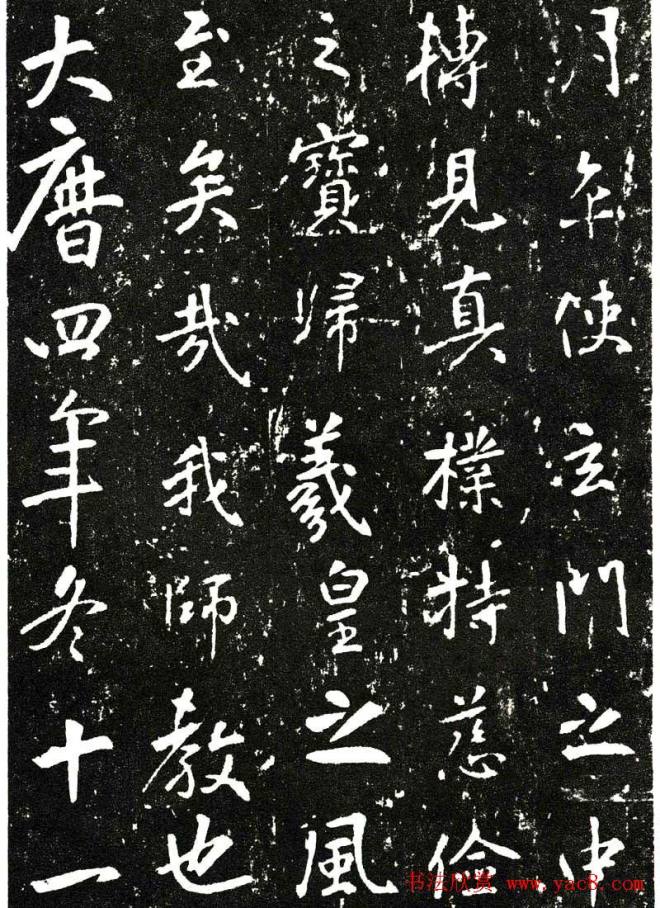 月使玄門之中
見真樸持慈儉
之寶歸羲皇之風
至矣哉我師教也
大曆四年冬十一
书法欣赏 www.yac8.com